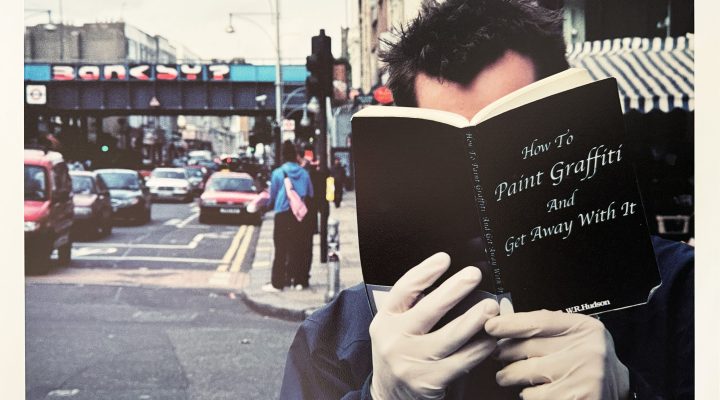 BANKSY?
How To Paint Graffiti And Get Away With It
How To
Paint Graffiti
And
Get Away With It
W.R.Hudson